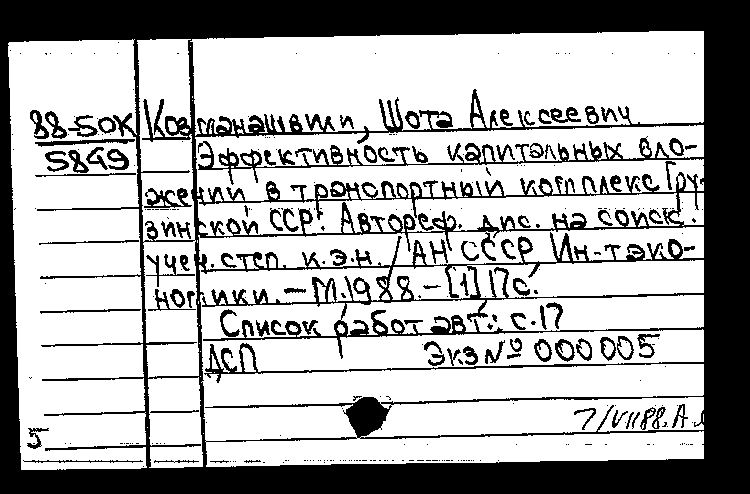 88-50К Козманашвили, Шота Алексеевич.
5849 Эффективность капитальных вло-
жений в транспортный комплекс Гру-
зинской ССР: Автореф. дис. на соиск.
учен. степ. к.э.н. / АН СССР, Ин-т эко-
номики. — М. 1988. — [1] 17 с.
Список работ авт.: с. 17
ДСП Экз № 000005
7/VII 88. А
5